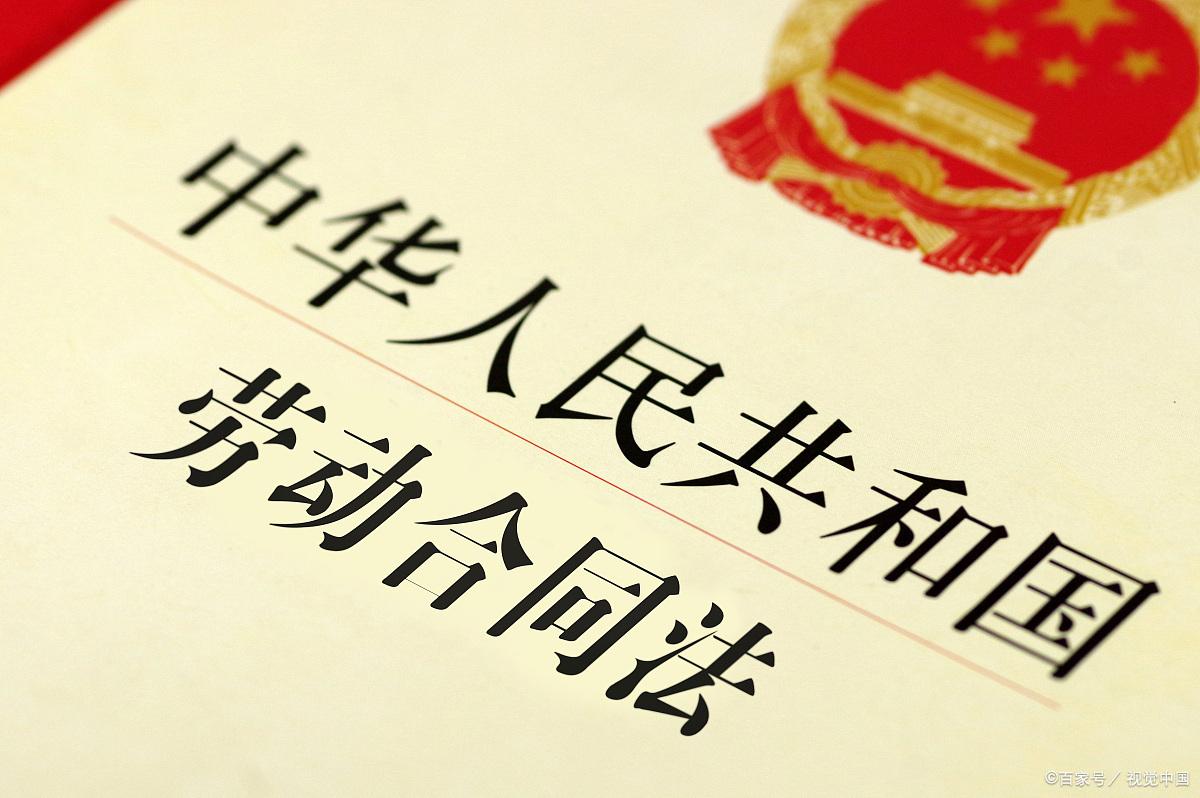 中华人民共和国
劳动合同法
©百家号／视觉中国